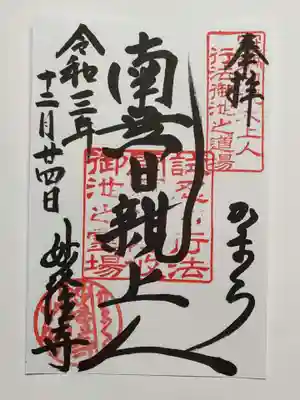 奉拝
かまくら
南無日親上人
令和三年
十二月廿四日
妙隆寺
上人
行法御池之道場
行法
御池之霊場